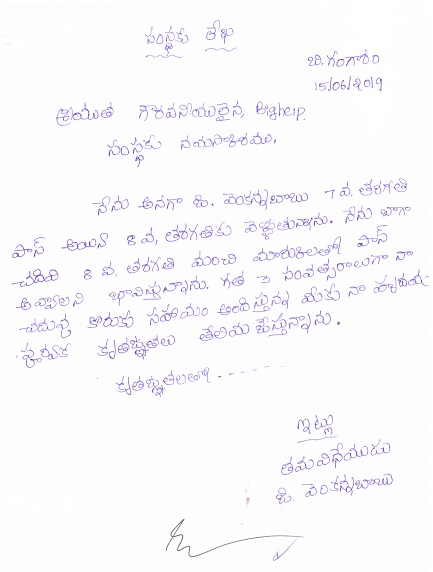 సంస్థకు లేఖ
బి. గంగారం
15/06/2019
శ్రీయుత గౌరవనీయులైన, Bighelp
సంస్థకు నమస్కారము,
నేను అనగా కె. వెంకన్నబాబు 7 వ, తరగతి
పాస్ అయిన 8 వ, తరగతికు వెళ్ళుతున్నాను. నేను బాగా
చదివి 8 వ, తరగతి మంచి మారుకులతో పాస్
అవ్వాలని భావిస్తున్నాను. గత 3 సంవత్సరాలుగా నా
చదువు కొరుకు సహాయం అందిస్తున్న మీకు నా హృదయ
పూర్వక కృతజ్ఞతలు తెలియ జేస్తున్నాను.
కృతజ్ఞతలతో. - - - - - -
ఇట్లు
తమవిధేయుడు
కె. వెంకన్నబాబు